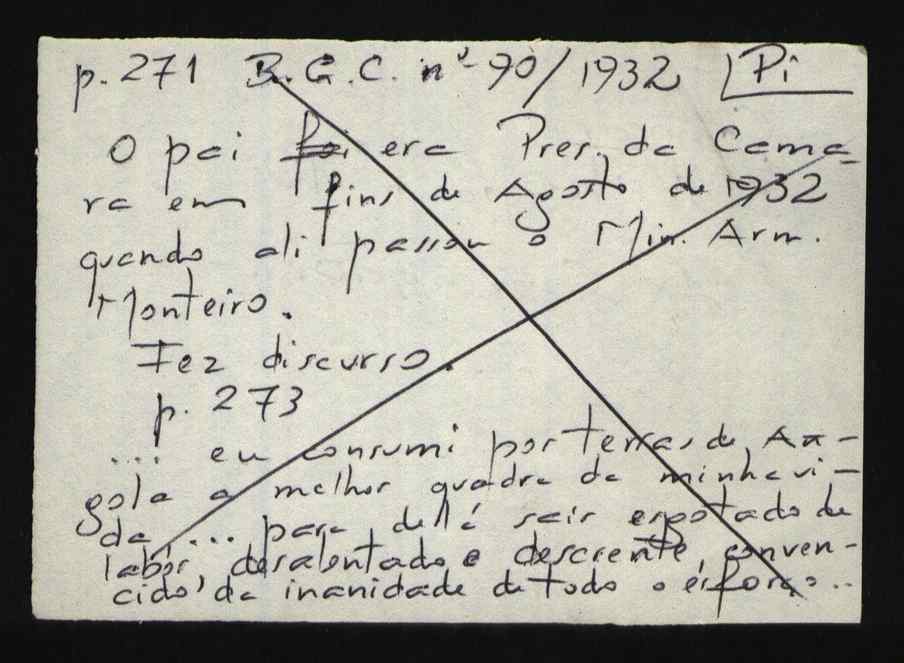 p. 271 B.G.C. nº 90/1932 Pi
O pai foi era Pres. da Cama-
ra em fins de Agosto de 1932
quando ali passou o Min. Arm.
Monteiro.
Fez discurso.
p. 273
... eu consumi por terras de An-
gola a melhor quadra da minha vi-
da ... para dellá sair esgotado de
labor, desalentado e descrente, conven-
cido da inanidade de todo o esforço...